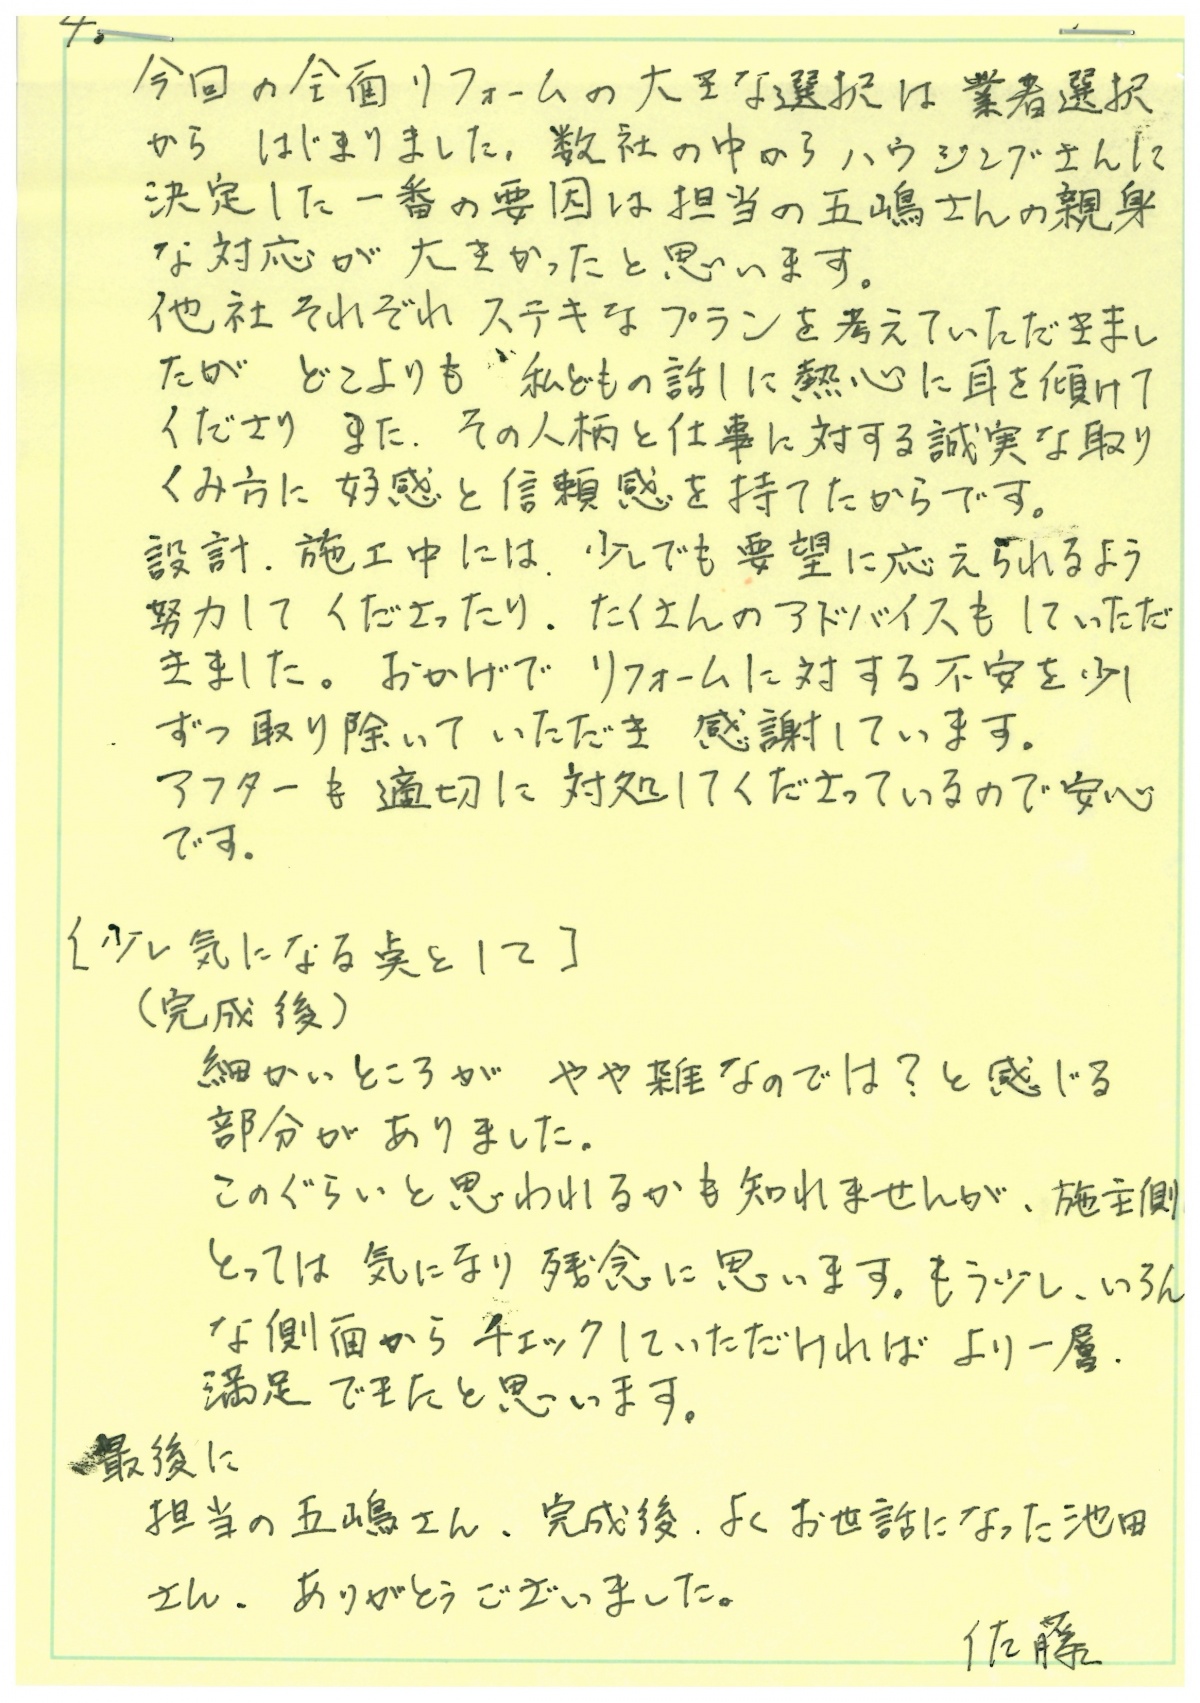 4.
今回の全面リフォームの大きな選択は業者選択
から はじまりました。数社の中から ハウジングさんに
決定した一番の要因は担当の五嶋さんの親身
な対応が 大きかったと思います。
他社それぞれ ステキな プランを考えていただきまし
たが どこよりも 私どもの話しに熱心に耳を傾けて
くださり また、その人柄と仕事に対する誠実な取り
くみ方に 好感と信頼感を持てたからです。
設計、施工中には、少しでも要望に応えられるよう
努力して くださったり、たくさんのアドバイスもしていただ
きました。おかげで リフォームに対する不安を少し
ずつ取り除いて いただき 感謝しています。
アフターも適切に 対処してくださっているので安心
です。
[少し気になる点として]
(完成後)
細かいところが やや雑なのでは?と感じる
部分が ありました。
このぐらいと思われるかも知れませんが、施主側
とっては 気になり残念に思います。もう少し、いろん
な側面から チェックしていただければ より一層、
満足できたと思います。
最後に
担当の五嶋さん、完成後、よくお世話になった池田
さん、ありがとうございました。
佐藤